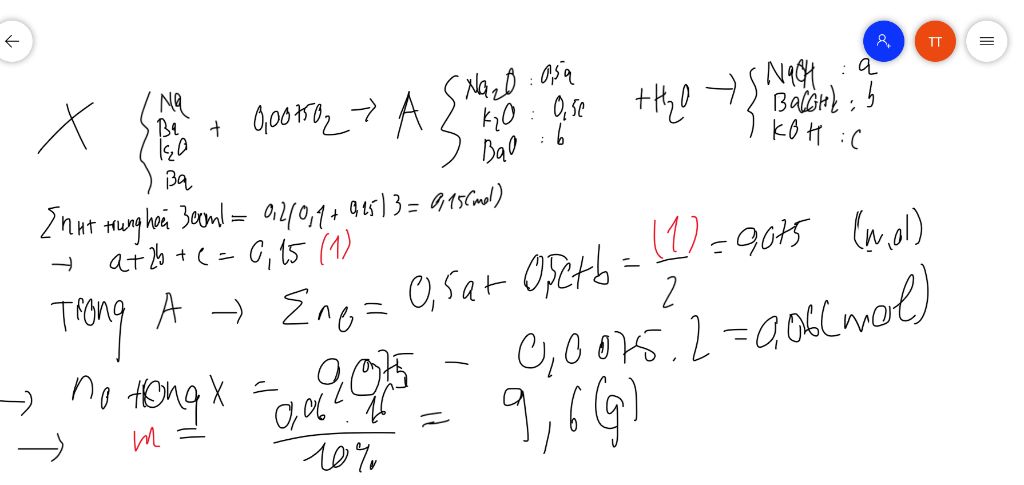 TT
X { Na Ba K₂O Ba + 0,0075O₂ → A { Na₂O : 0,5a K₂O : 0,5c BaO : b + H₂O → { NaOH : a Ba(OH)₂ : b KOH : c
Σn H+ trung hoà 300ml = 0,2(0,1 + 0,15)3 = 0,15(mol)
→ a+2b + c = 0,15 (1)
Trong A → Σn₀ = 0,5a + 0,5c + b = (1)/2 = 0,075 (mol)
→ n₀ trong X = 0,075 - 0,0075.2 = 0,06(mol)
→ m = 0,06.16/10% = 9,6(g)